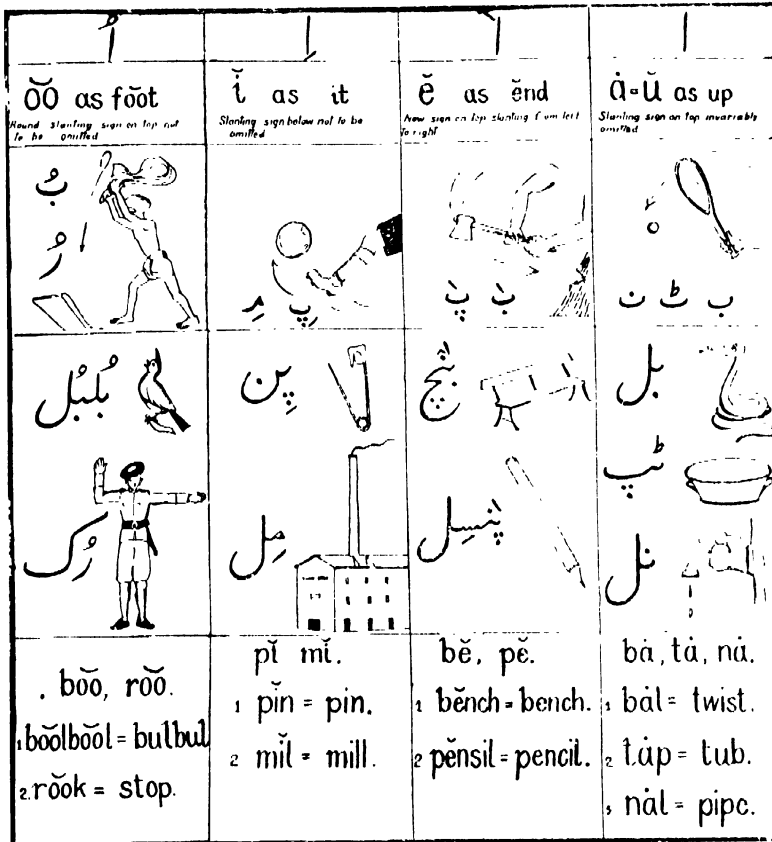 اُ
oŏ as foŏt
Round slanting sign on top not
to be omitted
بُ
رُ
بُلبُل
رُک
boŏ, roŏ.
1 boŏlboŏl = bulbul
2. roŏk = stop.
اِ
ĭ as it
Slanting sign below not to be
omitted
پِ مِ
پِن
مِل
pĭ mĭ.
1 pĭn = pin.
2 mĭl = mill.
ا
ĕ as ĕnd
New sign on top slanting from left
to right
ب پ
بنچ
پنسِل
bĕ, pĕ.
1 bĕnch = bench.
2 pĕnsil = pencil.
ا
ȧ = ŭ as up
Slanting sign on top invariably
omitted
ب ٹ ن
بل
ٹپ
نل
bȧ, tȧ, nȧ.
1 bȧl = twist.
2 tȧp = tub.
3 nȧl = pipe.